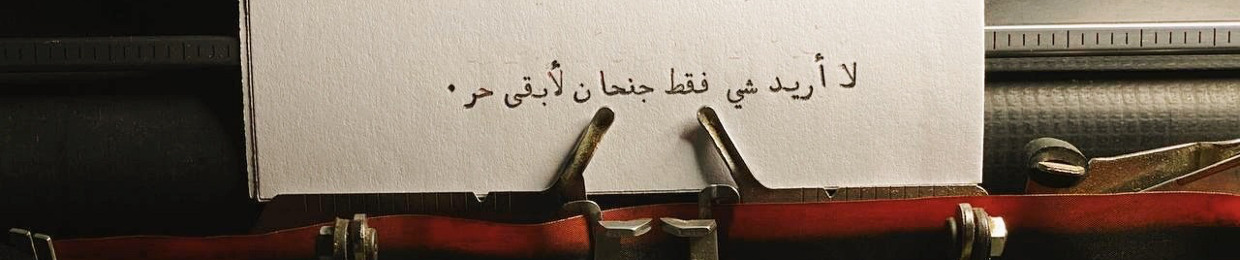 لا أريد شي فقط جنحان لأبقى حر.